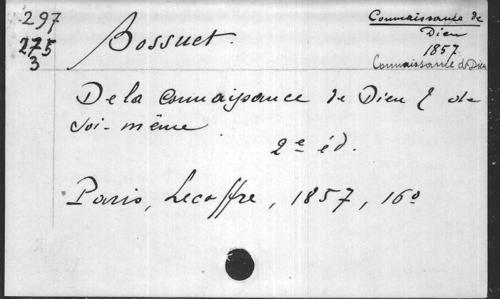 297
275
3
Bossuet.
Connaissance de
Dieu
1857
Connaissance de Dieu
De la Connaissance de Dieu & de
soi-même
2e éd.
Paris, Lecoffre, 1857, 16o